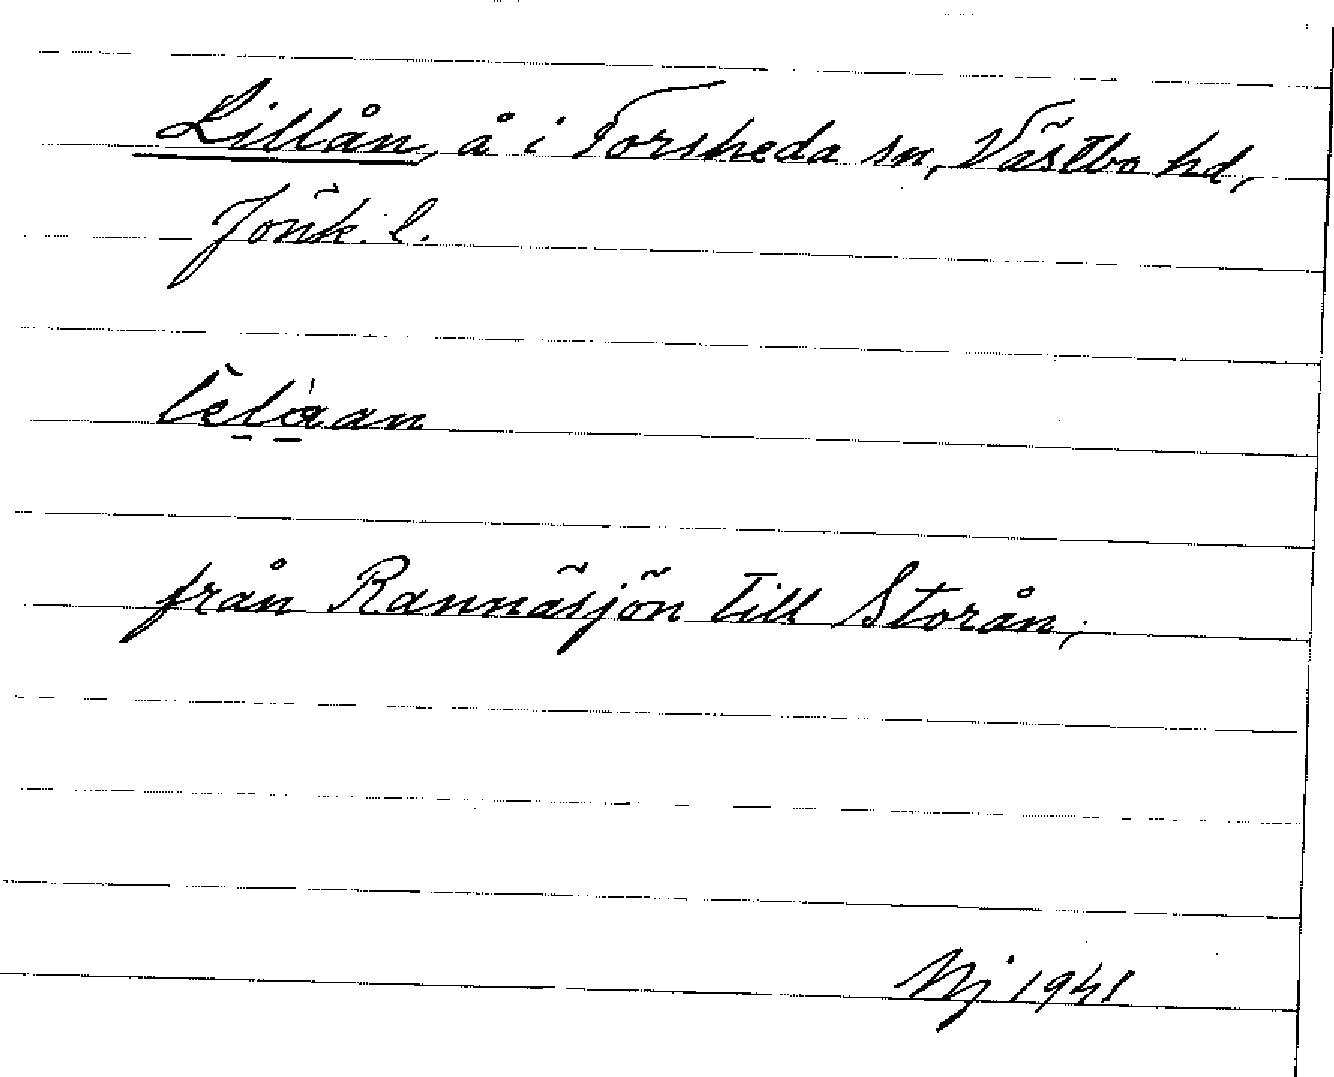 Lillån, å i Forsheda sn, Västbo hd,
Jönk. l.
från Rannäsjön till Storån,
Nj 1941